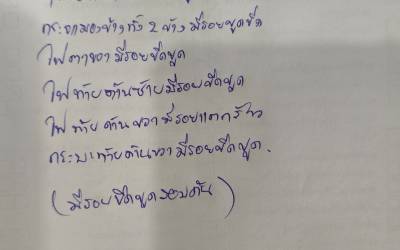 กระจกมองข้างทั้ง 2 ข้าง มีรอยขูดขีด
ไฟตาขวา มีรอยขีดขูด
ไฟท้ายด้านซ้ายมีรอยขีดขูด
ไฟท้ายด้านขวา มีรอยแตกร้าว
กระบะท้ายด้านขวา มีรอยขีดขูด.
(มีรอยขีดขูดรอบคัน)